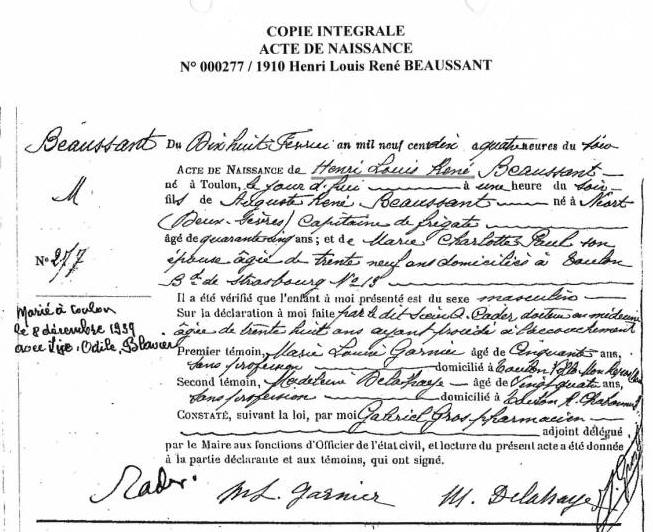 COPIE INTEGRALE
ACTE DE NAISSANCE
N° 000277 / 1910 Henri Louis René BEAUSSANT
Beaussant Du Dix huit Février an mil neuf cent dix à quatre heures du soir
ACTE DE NAISSANCE de Henri Louis René Beaussant
M. né à Toulon, le jour d'hui à une heure du soir
fils de Auguste René Beaussant né à Niort
(Deux-Sèvres) Capitaine de frégate
âgé de quarante cinq ans; et de Marie Charlotte Paul son
N° 277 épouse âgée de trente neuf ans domiciliés à Toulon
Bd de Strasbourg N° 18
Il a été vérifié que l'enfant à moi présenté est du sexe masculin
Marié à Toulon
le 8 décembre 1939
avec Odile
Sur la déclaration à moi faite par le dit docteur en médecine
âgé de trente huit ans ayant procédé à l'accouchement
Premier témoin, Marie Louise Garnier âgé de Cinquante ans,
sans profession domicilié à Toulon
Second témoin, Madeleine Delahaye âgé de Vingt quatre ans,
sans profession domicilié à Toulon
CONSTATÉ, suivant la loi, par moi Gabriel Gros pharmacien
adjoint délégué
par le Maire aux fonctions d'Officier de l'état civil, et lecture du présent acte a été donnée
à la partie déclarante et aux témoins, qui ont signé.
M L. Garnier M. Delahaye